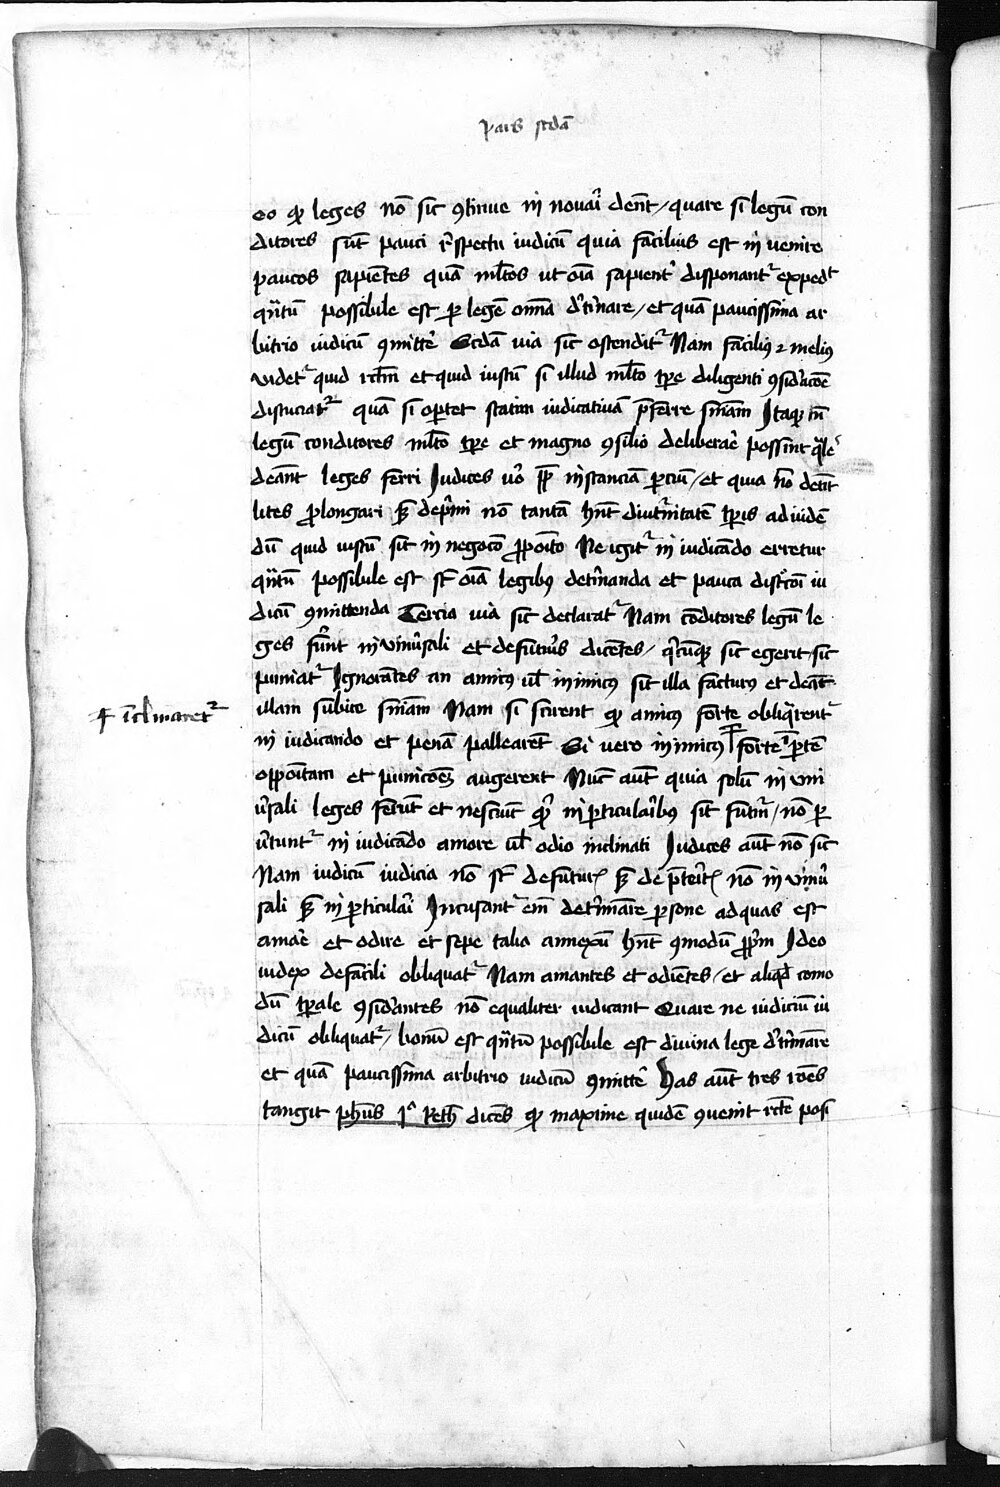 Pars scdā
eo qp leges nō sic ↄtinue in novari dent / quare si legū con
ditores sūt pauci respectu iudicū quia facilius est in venire
paucos sapientes quā mltos ut oīa sapienter disponantr expedt
qntū possibile est per legē omīa dtinare / et quā paucissima ar
bitrio iudicū ↄmitte Scdā via sic ostenditr Nam facilius et melius
videtr quid rcm et quid iustū si illud mlto tpre diligenti ↄsidacōe
discuciatr quā si oportet statim iudicativā pferre sniam Itaque cū
legū conditores mlto tpre et magno ↄsilio deliberare possint qle
deant leges ferri Judices vo ppt instanciā parciū / et quia nō debēt
lites plongari sed deprimi nō tantā hnt diuturnitatē tpris ad viden
dū quid iustū sit in negocō pposito Ne igitr in iudicādo erretur
qntū possibile est st oīa legibus detminanda et pauca discrcōi iu
dicū ↄmittenda Tercia via sic declaratr Nam cōditores legū le
ges ferunt in universali et de futuris dicētes / qcūque sic egerit sic
puniatr Ignorātes an amicus vel inimicus sit illa facturus et debeat
illam subire sniam Nam si scirent qp amicus forte obliqrentr
in iudicando et penā palliarēt Si vero inimicus forte ad partē
⁊ inclinaretr
oppositam et punicōes augerent Nūc autē quia solū in uni
vsali leges ferūt et nesciūt quo in particularibus sit futurū / nō per
vtuntr in iudicādo amore vel odio inclinati Judices autē nō sic
Nam iudicū iudicia nō st de futuris sed de preteritis nō in univ
sali sed in particulari Incusantr eni detminare persone ad quas est
amare et odire et sepe talia annexū hnt ↄmodū pprium Ideo
iudex de facili obliquatr Nam amantes et odientes / et aliquod como
dū tpale ↄsiderantes nō equaliter iudicant Quare ne iudiciū iu
dicū obliquatr / bonū est qntū possibile est divina lege dtminare
et quā paucissima arbitrio iudicū ↄmitte Has autē tres rōes
tangit phus Iº Reth dicēs qp maxime quidē ↄvenit rcte posi